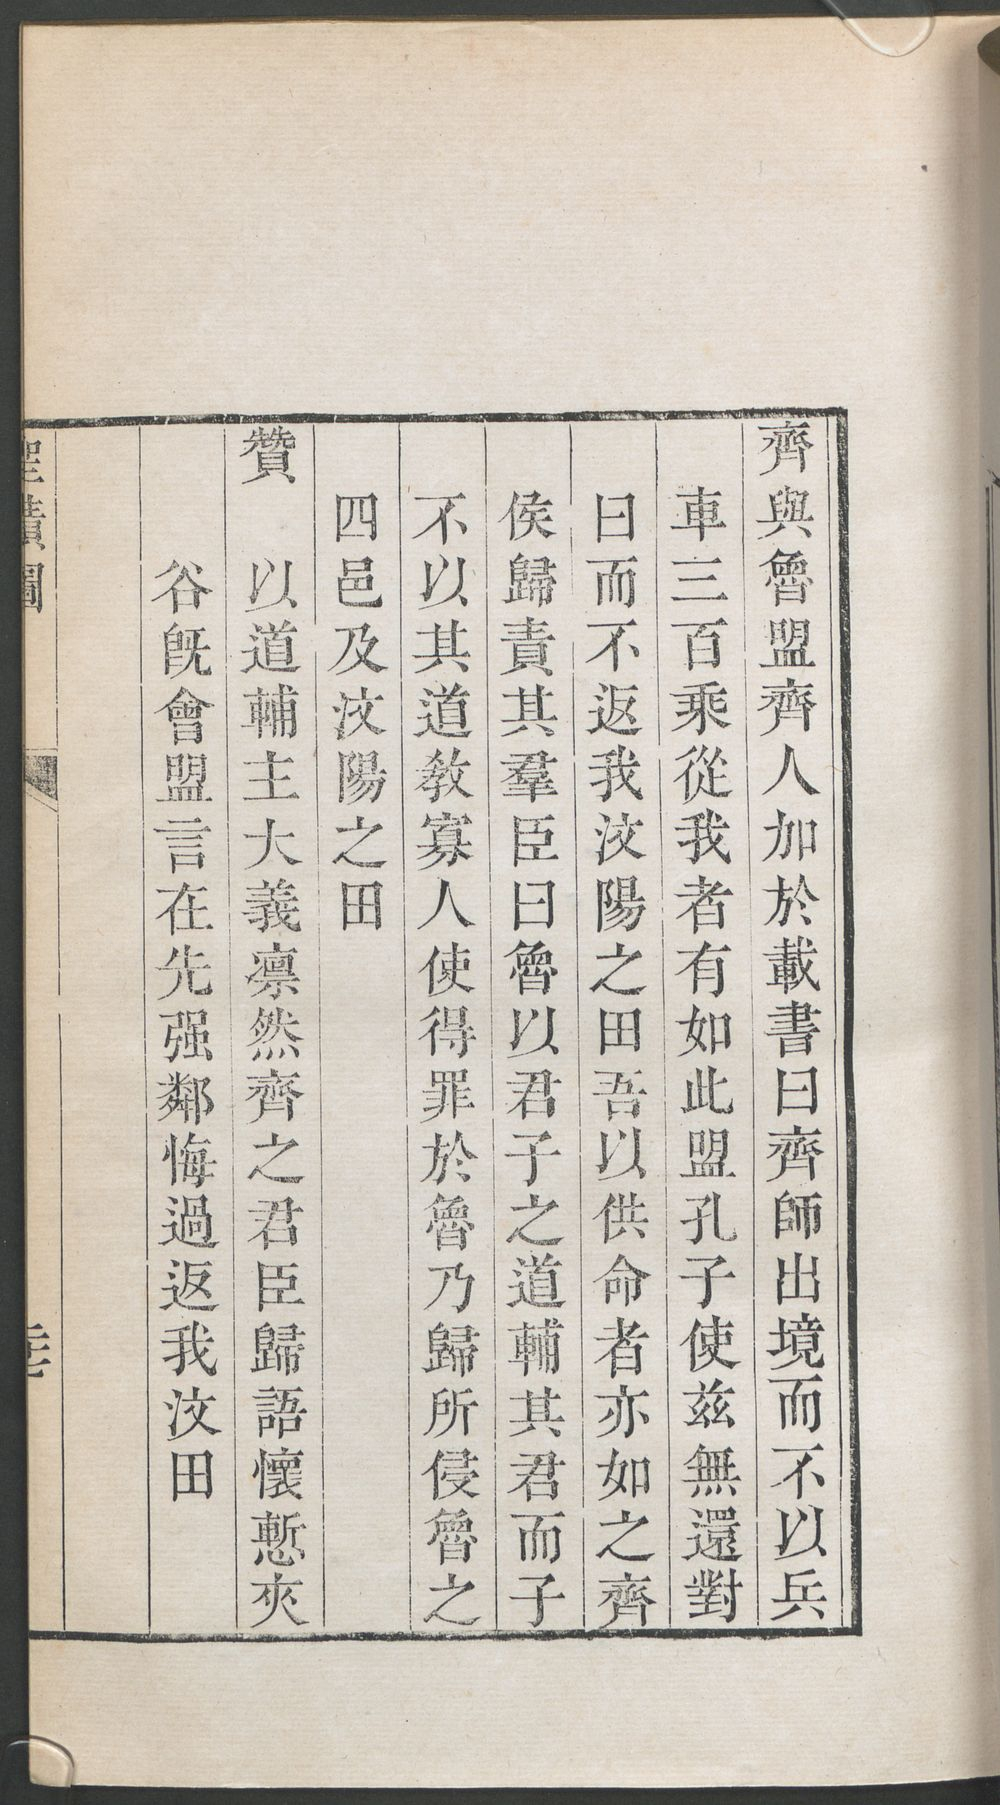 齊與魯盟齊人加於載書曰齊師出境而不以兵
車三百乘從我者有如此盟孔子使兹無還對
曰而不返我汶陽之田吾以供命者亦如之齊
侯歸責其羣臣曰魯以君子之道輔其君而子
不以其道教寡人使得罪於魯乃歸所侵魯之
四邑及汶陽之田
贊　以道輔主大義凛然齊之君臣歸語懷慙夾
谷旣會盟言在先强鄰悔過返我汶田
聖蹟圖